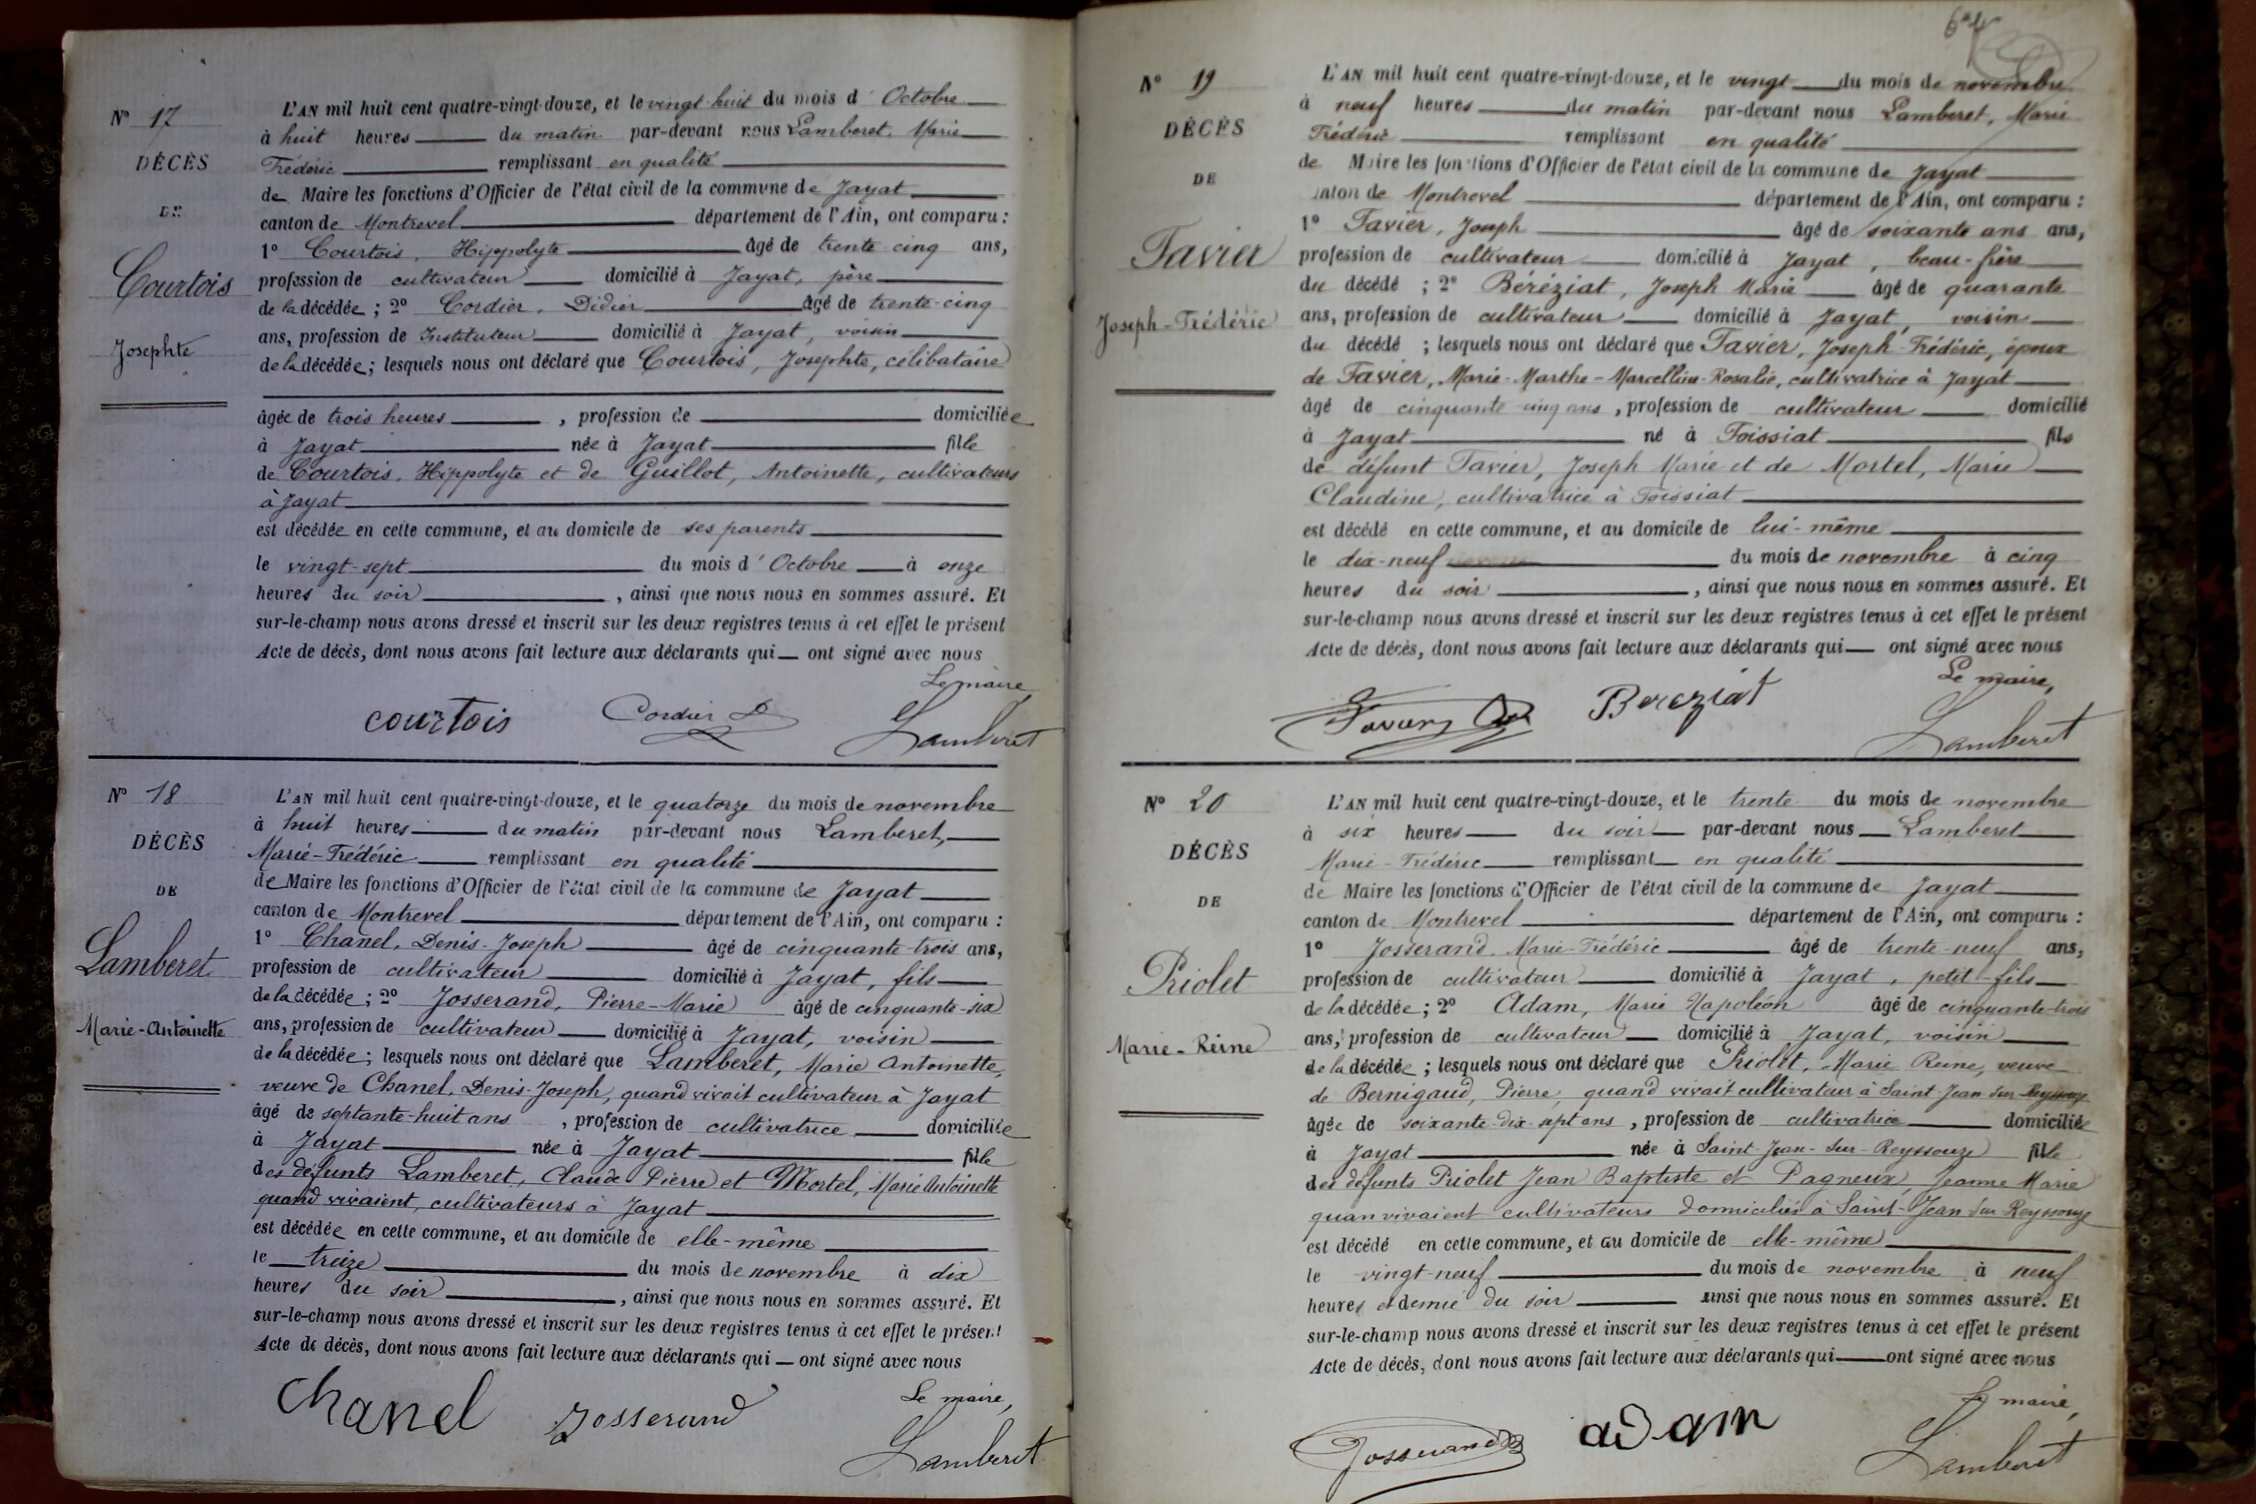 N° 17
DÉCÈS
DE
Courtois
Josephte
L'AN mil huit cent quatre-vingt-douze, et le vingt-huit du mois d'Octobre
à huit heures du matin par-devant nous Lamberet, Marie
Frédéric remplissant en qualité
de Maire les fonctions d'Officier de l'état civil de la commune de Jayat
canton de Montrevel département de l'Ain, ont comparu :
1° Courtois, Hippolyte âgé de trente cinq ans,
profession de cultivateur domicilié à Jayat, père
de la décédée ; 2° Cordier, Didier âgé de trente-cinq
ans, profession de Instituteur domicilié à Jayat, voisin
de la décédée ; lesquels nous ont déclaré que Courtois, Josephte, célibataire
âgée de trois heures , profession de domiciliée
à Jayat née à Jayat fille
de Courtois, Hippolyte et de Guillot, Antoinette, cultivateurs
à Jayat
est décédée en cette commune, et au domicile de ses parents
le vingt-sept du mois d'Octobre à onze
heures du soir , ainsi que nous nous en sommes assuré. Et
sur-le-champ nous avons dressé et inscrit sur les deux registres tenus à cet effet le présent
Acte de décès, dont nous avons fait lecture aux déclarants qui ont signé avec nous
Le maire
courtois Cordier D Lamberet
N° 18
DÉCÈS
DE
Lamberet
Marie-Antoinette
L'AN mil huit cent quatre-vingt-douze, et le quatorze du mois de novembre
à huit heures du matin par-devant nous Lamberet,
Marie-Frédéric remplissant en qualité
de Maire les fonctions d'Officier de l'état civil de la commune de Jayat
canton de Montrevel département de l'Ain, ont comparu :
1° Chanel, Denis-Joseph âgé de cinquante-trois ans,
profession de cultivateur domicilié à Jayat, fils
de la décédée ; 2° Josserand, Pierre-Marie âgé de cinquante-six
ans, profession de cultivateur domicilié à Jayat, voisin
de la décédée ; lesquels nous ont déclaré que Lamberet, Marie Antoinette,
veuve de Chanel, Denis-Joseph, quand vivait cultivateur à Jayat
âgé de septante-huit ans , profession de cultivatrice domiciliée
à Jayat née à Jayat fille
des défunts Lamberet, Claude Pierre et Mortel, Marie Antoinette
quand vivaient, cultivateurs à Jayat
est décédée en cette commune, et au domicile de elle-même
le treize du mois de novembre à dix
heures du soir , ainsi que nous nous en sommes assuré. Et
sur-le-champ nous avons dressé et inscrit sur les deux registres tenus à cet effet le présent
Acte de décès, dont nous avons fait lecture aux déclarants qui ont signé avec nous
Le maire,
Chanel Josserand Lamberet
64
N° 19
DÉCÈS
DE
Favier
Joseph-Frédéric
L'AN mil huit cent quatre-vingt-douze, et le vingt du mois de novembre
à neuf heures du matin par-devant nous Lamberet, Marie
Frédéric remplissant en qualité
de Maire les fonctions d'Officier de l'état civil de la commune de Jayat
canton de Montrevel département de l'Ain, ont comparu :
1° Favier, Joseph âgé de soixante ans ans,
profession de cultivateur domicilié à Jayat, beau-frère
du décédé ; 2° Béréziat, Joseph Marie âgé de quarante
ans, profession de cultivateur domicilié à Jayat, voisin
du décédé ; lesquels nous ont déclaré que Favier, Joseph-Frédéric, époux
de Favier, Marie-Marthe-Marcelline-Rosalie, cultivatrice à Jayat
âgé de cinquante-cinq ans , profession de cultivateur domicilié
à Jayat né à Foissiat fils
de défunt Favier, Joseph Marie et de Mortel, Marie
Claudine, cultivatrice à Foissiat
est décédé en cette commune, et au domicile de lui-même
le dix-neuf du mois de novembre à cinq
heures du soir , ainsi que nous nous en sommes assuré. Et
sur-le-champ nous avons dressé et inscrit sur les deux registres tenus à cet effet le présent
Acte de décès, dont nous avons fait lecture aux déclarants qui ont signé avec nous
Le maire,
Bereziat Lamberet
N° 20
DÉCÈS
DE
Priolet
Marie-Reine
L'AN mil huit cent quatre-vingt-douze, et le trente du mois de novembre
à six heures du soir par-devant nous Lamberet
Marie-Frédéric remplissant en qualité
de Maire les fonctions d'Officier de l'état civil de la commune de Jayat
canton de Montrevel département de l'Ain, ont comparu :
1° Josserand, Marie-Frédéric âgé de trente-neuf ans,
profession de cultivateur domicilié à Jayat, petit-fils
de la décédée ; 2° Adam, Marie Napoléon âgé de cinquante-trois
ans, profession de cultivateur domicilié à Jayat, voisin
de la décédée ; lesquels nous ont déclaré que Priolet, Marie Reine, veuve
de Bernigaud, Pierre, quand vivait cultivateur à Saint-Jean-sur-Reyssouze
âgée de soixante-dix-sept ans , profession de cultivatrice domiciliée
à Jayat née à Saint-Jean-sur-Reyssouze fille
des défunts Priolet Jean Baptiste et Pagneux, Jeanne Marie
quan vivaient cultivateurs domiciliés à Saint-Jean sur Reyssouze
est décédé en cette commune, et au domicile de elle-même
le vingt-neuf du mois de novembre à neuf
heures et demie du soir ainsi que nous nous en sommes assuré. Et
sur-le-champ nous avons dressé et inscrit sur les deux registres tenus à cet effet le présent
Acte de décès, dont nous avons fait lecture aux déclarants qui ont signé avec nous
Le maire,
Josserand adam Lamberet